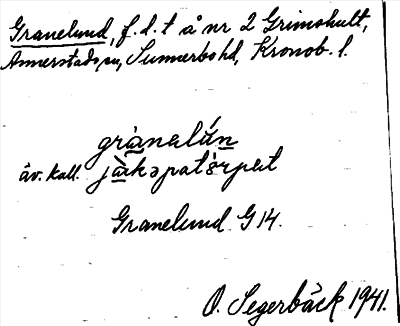 Granelund, f.d.t å nr 2 Grimshult,
Annerstads sn, Sunnerbo hd, Kronob. l.
grànelún
äv. kall.
Granelund G 14.
O. Segerbäck 1941.